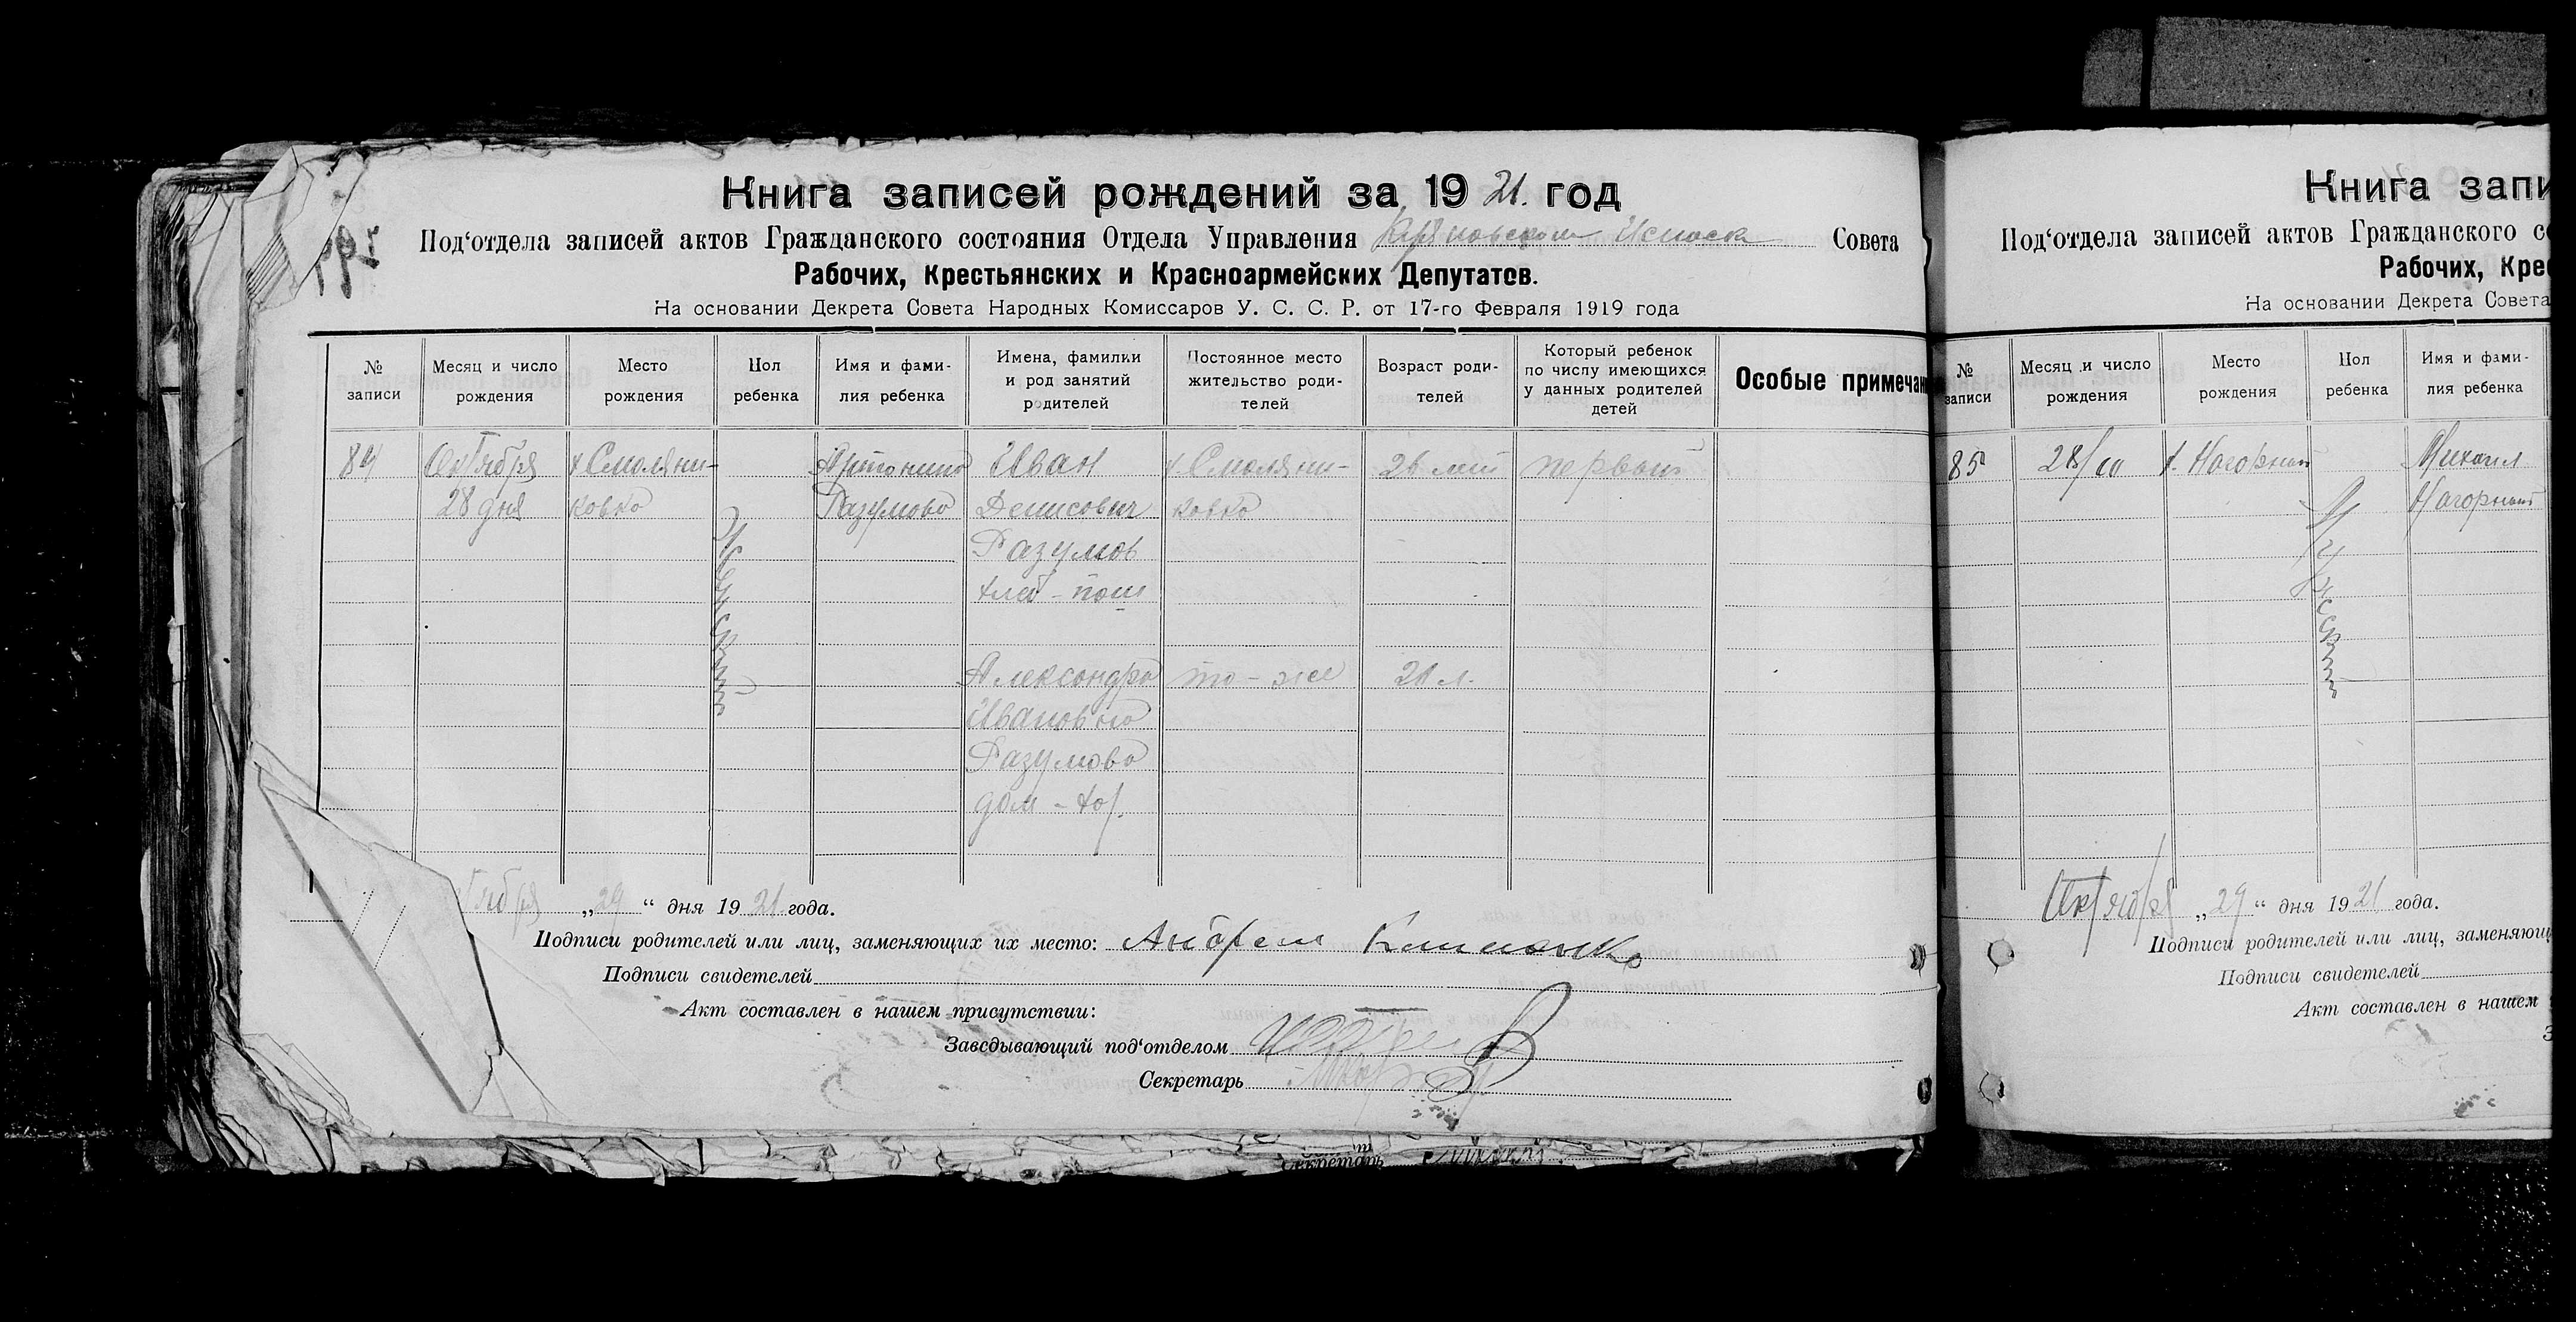 Книга записей рождений за 1921. год
Под‘отдела записей актов Гражданского состояния Отдела Управления Совета
Рабочих, Крестьянских и Красноармейских Депутатов.
На основании Декрета Совета Народных Комиссаров У. С. С. Р. от 17-го Февраля 1919 года
№ записи
Месяц и число рождения
Место рождения
Пол ребенка
Имя и фами-
лия ребенка
Имена, фамилии
и род занятий
родителей
Постоянное место
жительство роди-
телей
Возраст роди-
телей
Который ребенок
по числу имеющихся
у данных родителей
детей
Особые примечан
84
Октября
28 дня
х Смоляни-
ково
Женский
Антонина
Разумова
Иван
Денисович
Разумов
хлеб-паш
х. Смоляни-
ково
26 лет
первый
Александра
Ивановна
Разумова
дом-хоз.
то-же
21 л.
тября „29“ дня 1921 года.
Подписи родителей или лиц, заменяющих их место: Андрей
Подписи свидетелей
Акт составлен в нашем присутствии:
Заведывающий под‘отделом
Секретарь
Секретарь
Книга запи
Под‘отдела записей актов Гражданского со
Рабочих, Крес
На основании Декрета Совета
№ записи
Месяц и число рождения
Место рождения
Пол ребенка
Имя и фами-
лия ребенка
85
28/10
х. Нагорный
Мужской
Михаил
Нагорный
Октября „29“ дня 1921 года.
Подписи родителей или лиц, заменяющ
Подписи свидетелей
Акт составлен в нашем
З